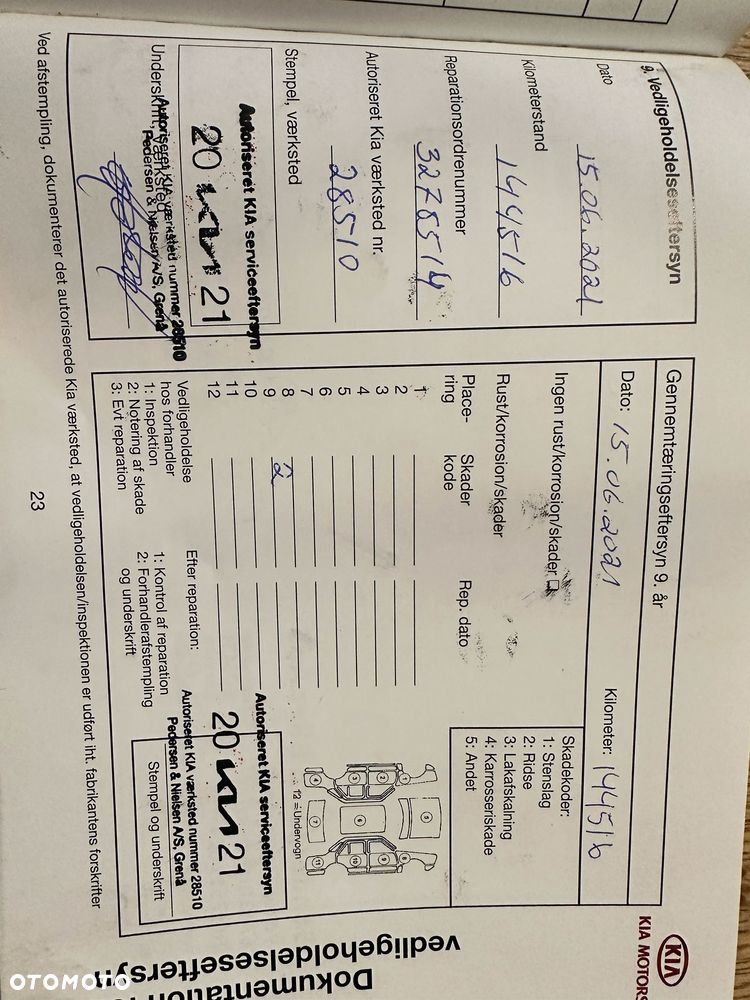 9. Vedligeholdelseseftersyn
Dato 15.06.2021
Kilometerstand 144516
Reparationsordrenummer 3278514
Autoriseret Kia værksted nr. 28510
Stempel, værksted
Autoriseret KIA serviceeftersyn
20 KIA 21
Autoriseret KIA værksted nummer 28510
Pedersen & Nielsen A/S, Grenå
Underskrift, værksted
Gennemtæringseftersyn 9. år
Dato: 15.06.2021 Kilometer: 144516
Ingen rust/korrosion/skader
Rust/korrosion/skader
Place-
ring
Skader
kode
Rep. dato
1
2
3
4
5
6
7
8
9 2
10
11
12
Skadekoder:
1: Stenslag
2: Ridse
3: Lakafskalning
4: Karrosseriskade
5: Andet
12 = Undervogn
Vedligeholdelse
hos forhandler
1: Inspektion
2: Notering af skade
3: Evt reparation
Efter reparation:
1: Kontrol af reparation
2: Forhandlerafstempling
og underskrift
Autoriseret KIA serviceeftersyn
20 KIA 21
Autoriseret KIA værksted nummer 28510
Pedersen & Nielsen A/S, Grenå
Stempel og underskrift
Ved afstempling, dokumenterer det autoriserede Kia værksted, at vedligeholdelsen/inspektionen er udført iht. fabrikantens forskrifter
23
KIA
KIA MOTORS
Dokumentation
vedligeholdelseseftersyn
OTOMOTO